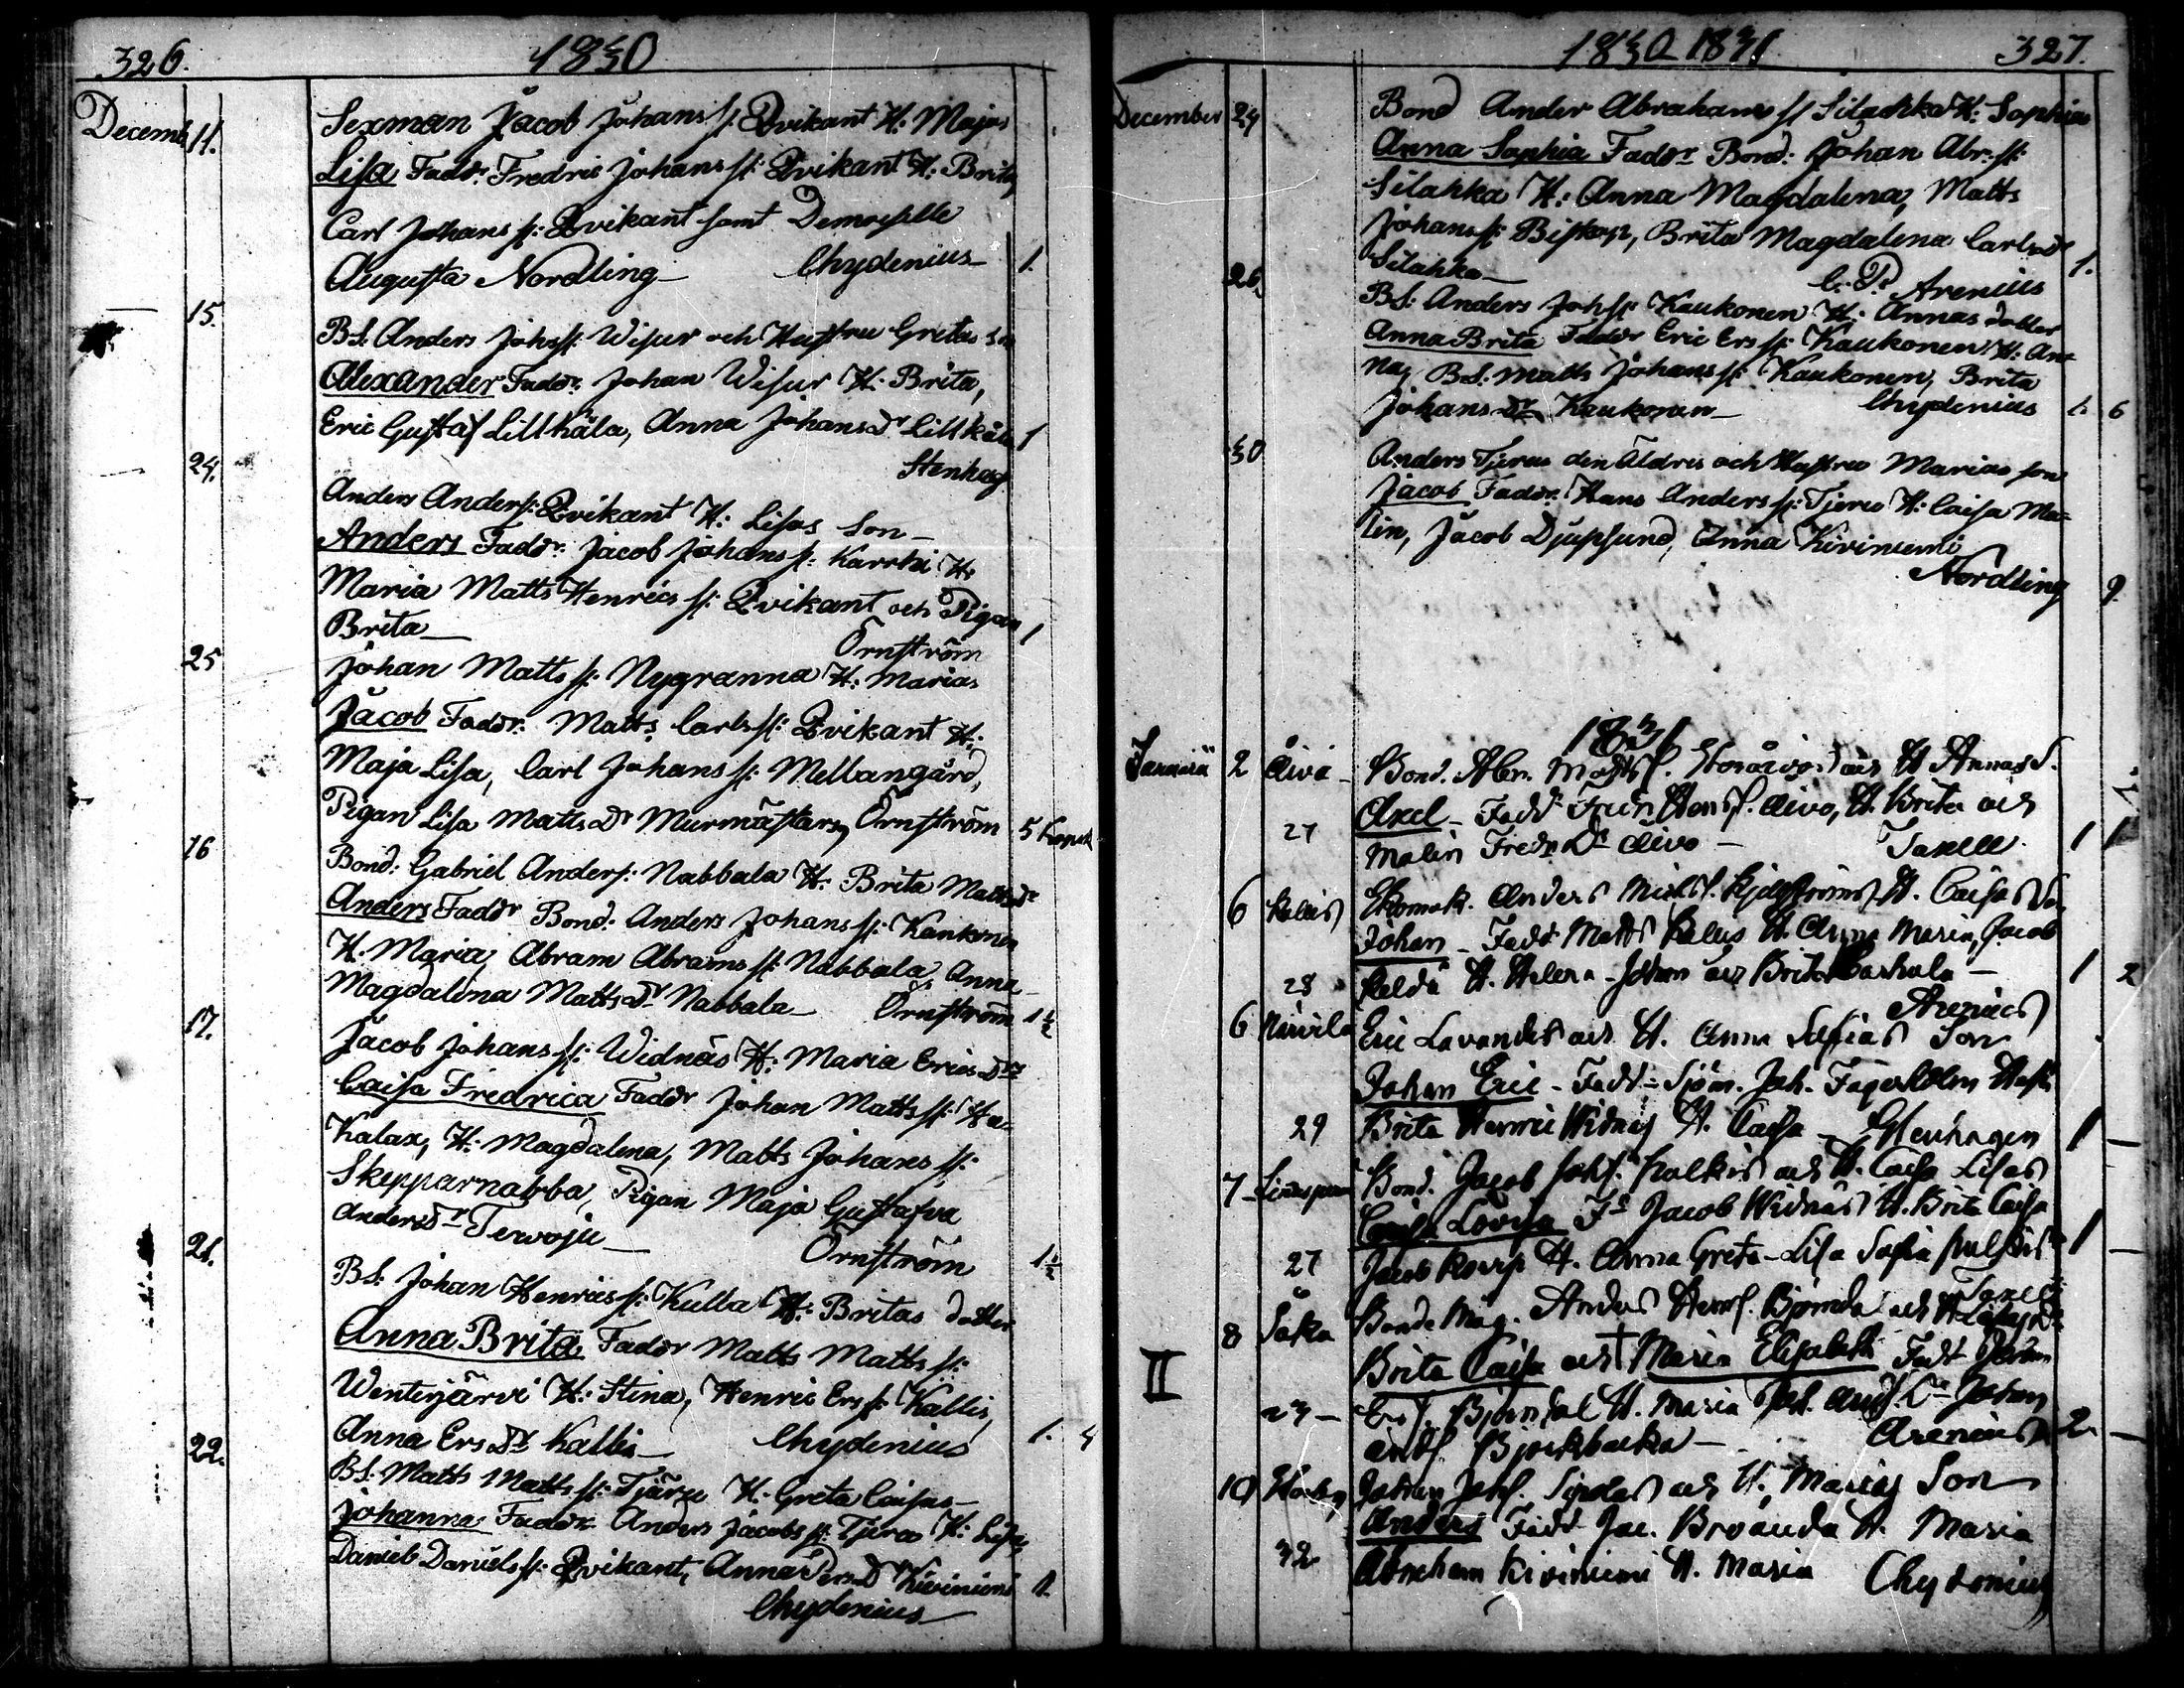 326. 1830
Decemb 11. Sexman Jacob Johans s: Qvikant H: Majas
Lisa Faddr. Fredric Johans s: Qvikant H: Brita
Carl Johans s: Qvikant samt Demoiselle
Augusta Nordling Chydenius 1.
15. BS. Anders Johs s: Wisur och Hustru Gretas son
Alexander Faddr. Johan Wisur H: Brita,
Eric Gustaf Lillkåla, Anna Johans Dr Lillkåla 1
Stenhag
24. Anders Anders s: Qvikant H: Lisas Son
Anders Faddr. Jacob Johans s: Karrki H:
Maria Matts Henrics s: Qvikant och Pigan
Brita Örnström 1
25 Johan Matts s: Nygranna H: Marias
Jacob Faddr. Matts Carls s: Qvikant H:
Maja Lisa, Carl Johans s: Mellangård,
Pigan Lisa Matts Dr Murmästars, Örnström 5
16 Bond: Gabriel Anders s: Nabbala H: Brita Matts Dr
Anders Faddr Bond: Anders Johans s: Kaukonen
H: Maria, Abram Abrams s: Nabbala, Anna
Magdalena Matts Dr Nabbala Örnström 1½
17. Jacob Johans s: Widnäs H: Maria Erics Drs
Caisa Fredrica Faddr Johan Matts s: Ha-
Kalax, H: Magdalena, Matts Johans s:
Skepparnabba, Pigan Maja Gustafva
Anders Dr Terwoju Örnström 1½
21. BS: Johan Henrics s: Kulla H: Britas dotter
Anna Brita Faddr Matts Matts s:
Wenterjärvi H: Stina, Henric Ers s: Kallis,
Anna Ers Dr Kallis Chydenius 1. 4
22. BS: Matts Matts s: Tjäru H: Greta Caisas
Johanna Faddr Anders Jacobs s: Tjeru H: Lisa,
Daniel Daniels s: Qvikant, Anna Pers D Kiviniemi 1.
Chydenius
1830 1831 327.
December 24 Bond Ander Abrahams s Silahka H: Sophias
Anna Sophia Faddr Bond: Johan Abr: s:
Silahka H: Anna Magdalena, Matts
Johans s: Biskop, Brita Magdalena Carls Dr
Silahka C. P. Arenius 1.
26. BS: Anders Johs s: Kaukonen H: Annas dotter
Anna Brita Faddr Eric Ers s: Kaukonen H: An-
na, BS: Matts Johans s: Kaukonen, Brita
Johans Dr Kaukonen Chydenius 1. 6
30 Anders Tjeru den Äldres och Hustru Marias son
Jacob Faddr. Hans Anders s: Tjeru H: Caisa Ma-
lin, Jacob Djupsund, Anna Kiviniemi
Nordling 9.
1831
Januarii 2 Åivo Bond. Abr. Matts s. Storåivo och H Annas S.
Axel Fadd Fredr. Hens s. Åivo, H. Brita och
27 Malin Fredr. Dr Åivo Taxell. 1 1
6 Kalus Anders Michls s. H. Caisas
Johan Fadd Matts Kalus H. Anna Maria, Jacob
28 H. Helena Johan och Brita 1 2
Arenius
6 Eric Lavander och H. Anna Sofias Son
Johan Eric Fadd Sjöm. Joh. Fagerholm Hust.
29 Brita Henric Widnäs H. Caisa Stenhagen 1
7 Bond. Jacob Johs. och H. Caisa Lisas
Caisa Lovisa Fr Jacob Widnäs H. Brita Caisa
27 Jacob H. Anna Greta Lisa Sofia 1
Taxell
8 Såka Bonde Måg. Anders Hens s. Björnda och H
Brita Caisa och † Maria Elisabeth Fadd
II H. Maria Johan
Björkbacka Arenius 2
10 Johan Johs. och H. Marias Son
Anders Fadd Jac. H. Maria
32 Abraham Kiviniemi H. Maria Chydenius